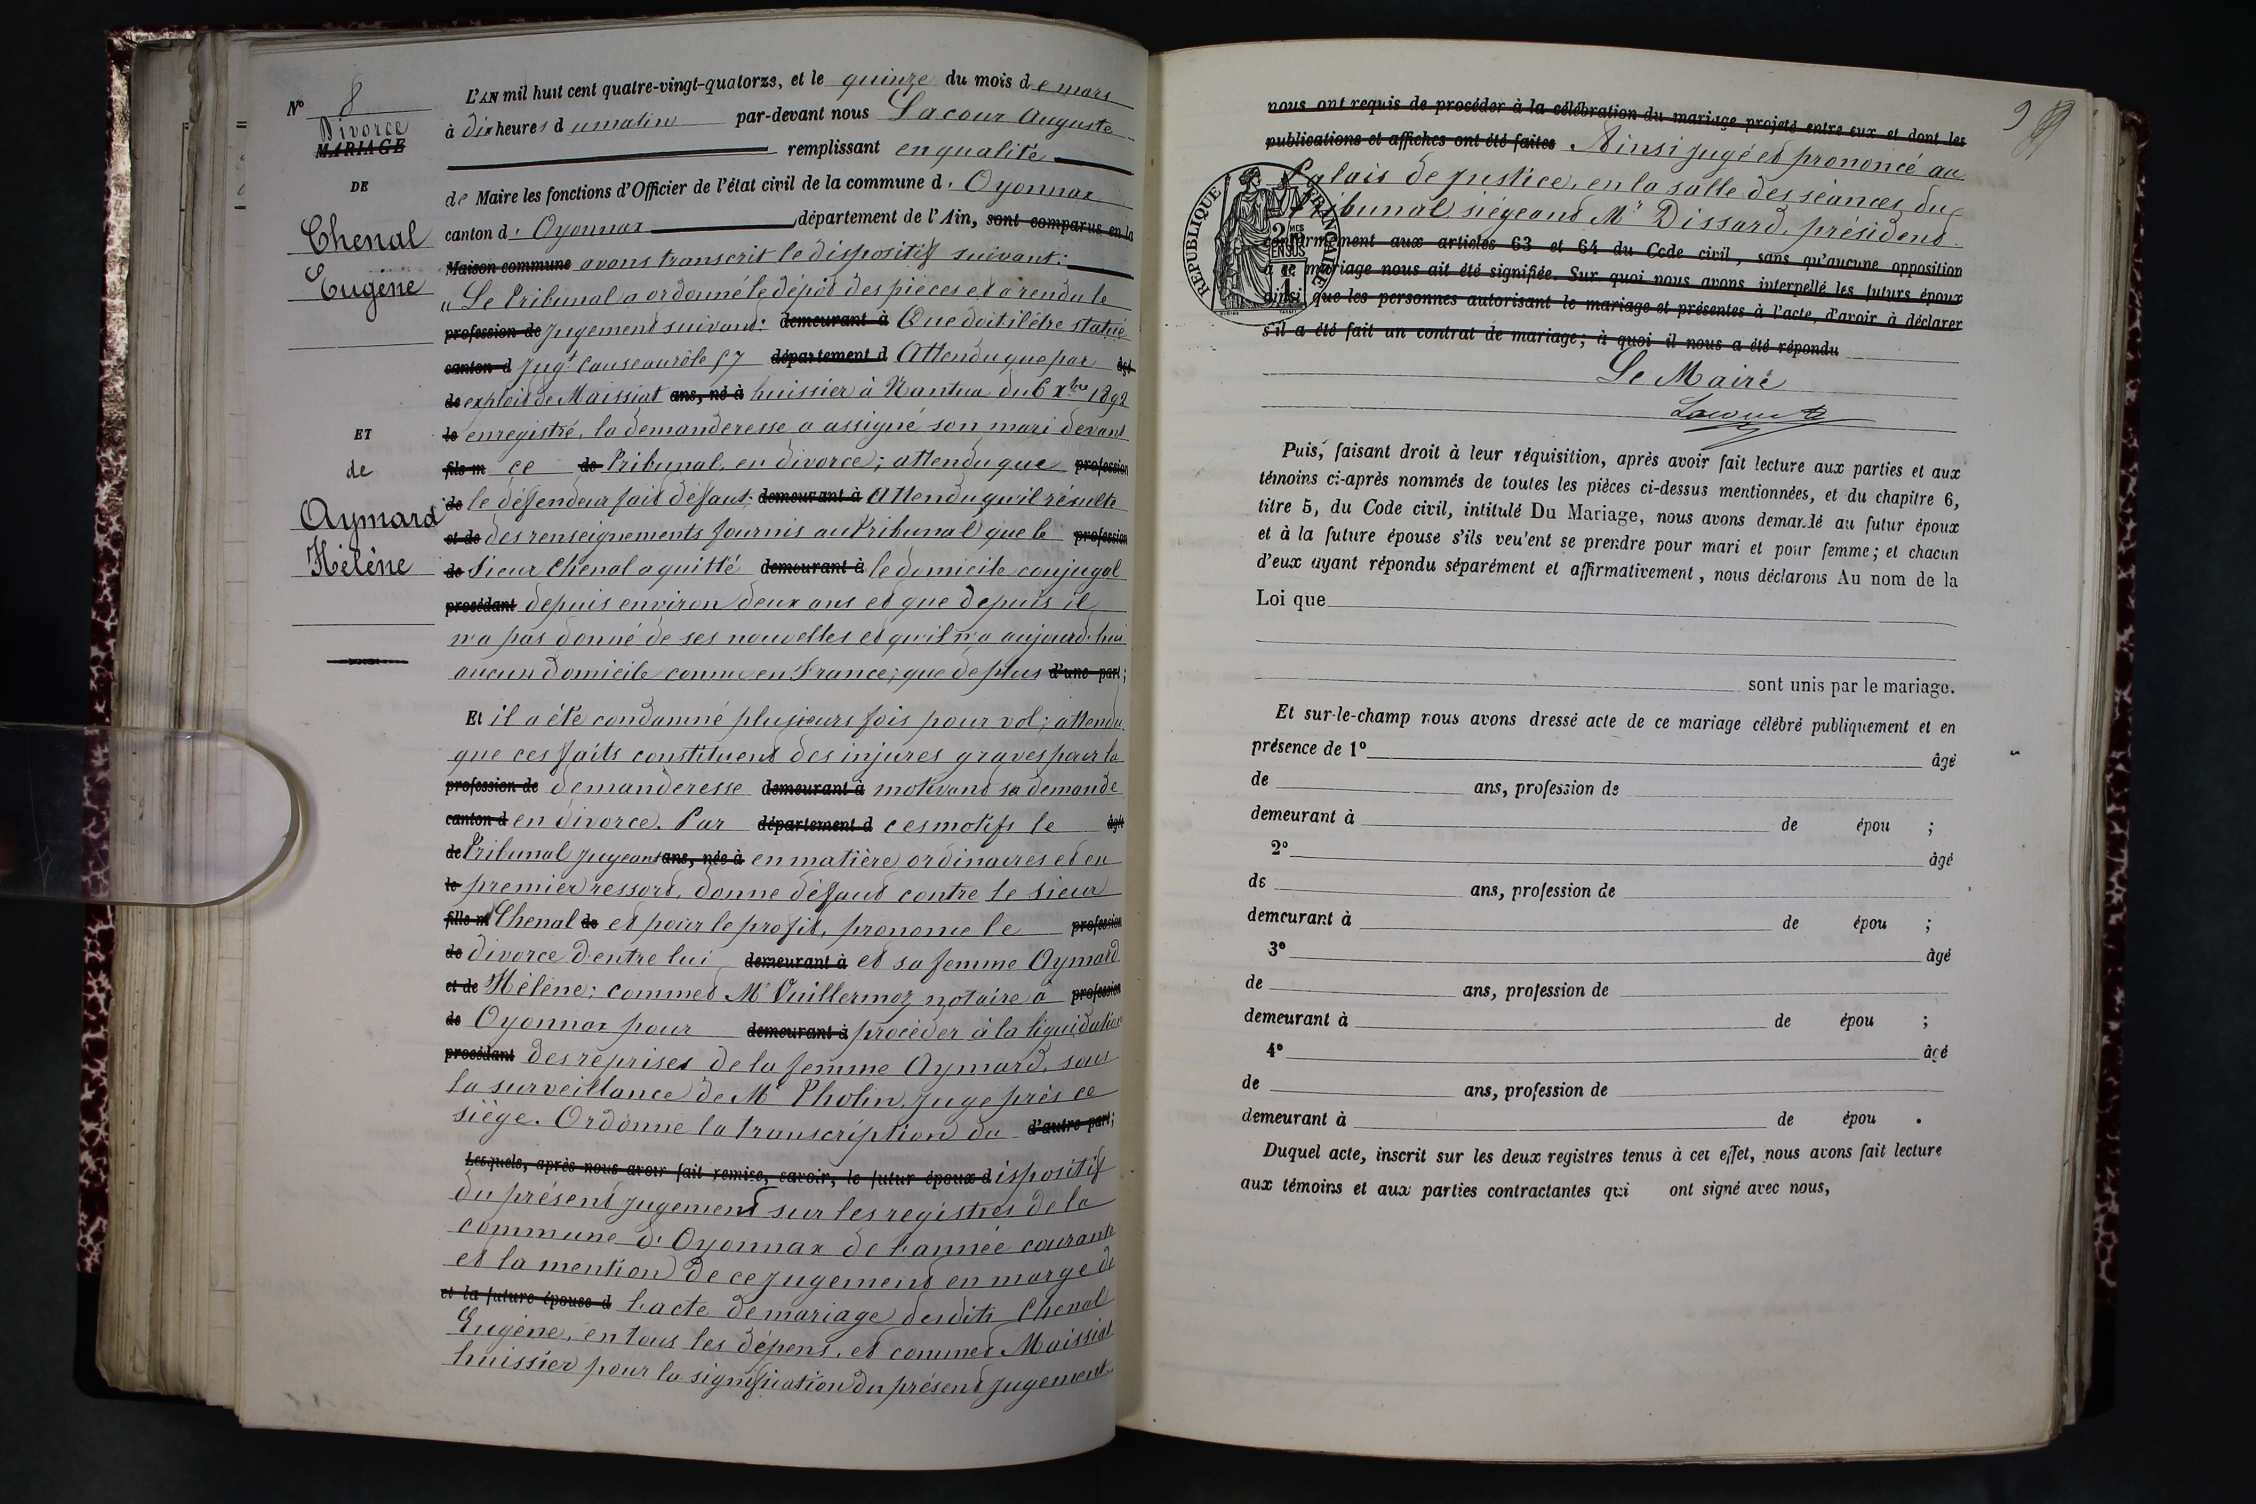 N° 8
Divorce
MARIAGE
DE
Chenal
Eugène
ET
de
Aymard
Hélène
L'AN mil huit cent quatre-vingt-quatorze, et le quinze du mois de mars
à dix heures du matin par-devant nous Lacour Auguste
remplissant en qualité
de Maire les fonctions d'Officier de l'état civil de la commune d'Oyonnax
canton d'Oyonnax département de l'Ain, sont comparus en la
Maison commune avons transcrit le dispositif suivant:
„ Le Tribunal a ordonné le dépôt des pièces et a rendu le
profession de jugement suivant: demeurant à Que doit il être statué
canton d Jugt cause au rôle 57 département d Attendu que par âgé
de exploit de Maissiat ans, né à huissier à Nantua du 6 Xbre 1892
le enregistré, la demanderesse a assigné son mari devant
fils m ce de Tribunal, en divorce; attendu que profession
de le défendeur fait défaut; demeurant à Attendu qu'il résulte
et de des renseignements fournis au Tribunal que le profession
de sieur Chenal a quitté demeurant à le domicile conjugal
procédant depuis environ deux ans et que depuis il
n'a pas donné de ses nouvelles et qu'il n'a aujourd'hui
aucun domicile connu en France; que de plus d'une part;
Et il a été condamné plusieurs fois pour vol; attendu
que ces faits constituent des injures graves pour la
profession de demanderesse demeurant à motivant sa demande
canton d en divorce. Par département d ces motifs le âgée
de Tribunal jugeant ans, née à en matière ordinaires et en
le premier ressort, donne défaut contre le sieur
fille m Chenal de et pour le profit, prononce le profession
de divorce d'entre lui demeurant à et sa femme Aymard
et de Hélène; commet Me Vuillermoz notaire à profession
de Oyonnax pour demeurant à procéder à la liquidation
procédant des reprises de la femme Aymard, sous
la surveillance de Mr Pholin, juge près ce
siège. Ordonne la transcription du d'autre part;
Lesquels, après nous avoir fait remise, savoir, le futur époux d ispositif
du présent jugement sur les registres de la
commune d'Oyonnax de l'année courante
et la mention de ce jugement en marge de
et la future épouse d l'acte de mariage desdits Chenal
Eugène, en tous les dépens, et commet Maissiat
huissier pour la signification du présent jugement.
nous ont requis de procéder à la célébration du mariage projeté entre eux et dont les
publications et affiches ont été faites Ainsi jugé et prononcé au
Palais de justice, en la salle des séances du
Tribunal siégeant Mr Dissard, président
conformément aux articles 63 et 64 du Code civil, sans qu'aucune opposition
à ce mariage nous ait été signifiée. Sur quoi nous avons interpellé les futurs époux
ainsi que les personnes autorisant le mariage et présentes à l'acte, d'avoir à déclarer
s'il a été fait un contrat de mariage; à quoi il nous a été répondu
RÉPUBLIQUE FRANÇAISE
Le Maire
Lacour A
Puis, faisant droit à leur réquisition, après avoir fait lecture aux parties et aux
témoins ci-après nommés de toutes les pièces ci-dessus mentionnées, et du chapitre 6,
titre 5, du Code civil, intitulé Du Mariage, nous avons demandé au futur époux
et à la future épouse s'ils veulent se prendre pour mari et pour femme; et chacun
d'eux ayant répondu séparément et affirmativement, nous déclarons Au nom de la
Loi que
sont unis par le mariage.
Et sur-le-champ nous avons dressé acte de ce mariage célébré publiquement et en
présence de 1° âgé
de ans, profession de
demeurant à de épou ;
2° âgé
de ans, profession de
demeurant à de épou ;
3° âgé
de ans, profession de
demeurant à de épou ;
4° âgé
de ans, profession de
demeurant à de épou .
Duquel acte, inscrit sur les deux registres tenus à cet effet, nous avons fait lecture
aux témoins et aux parties contractantes qui ont signé avec nous,